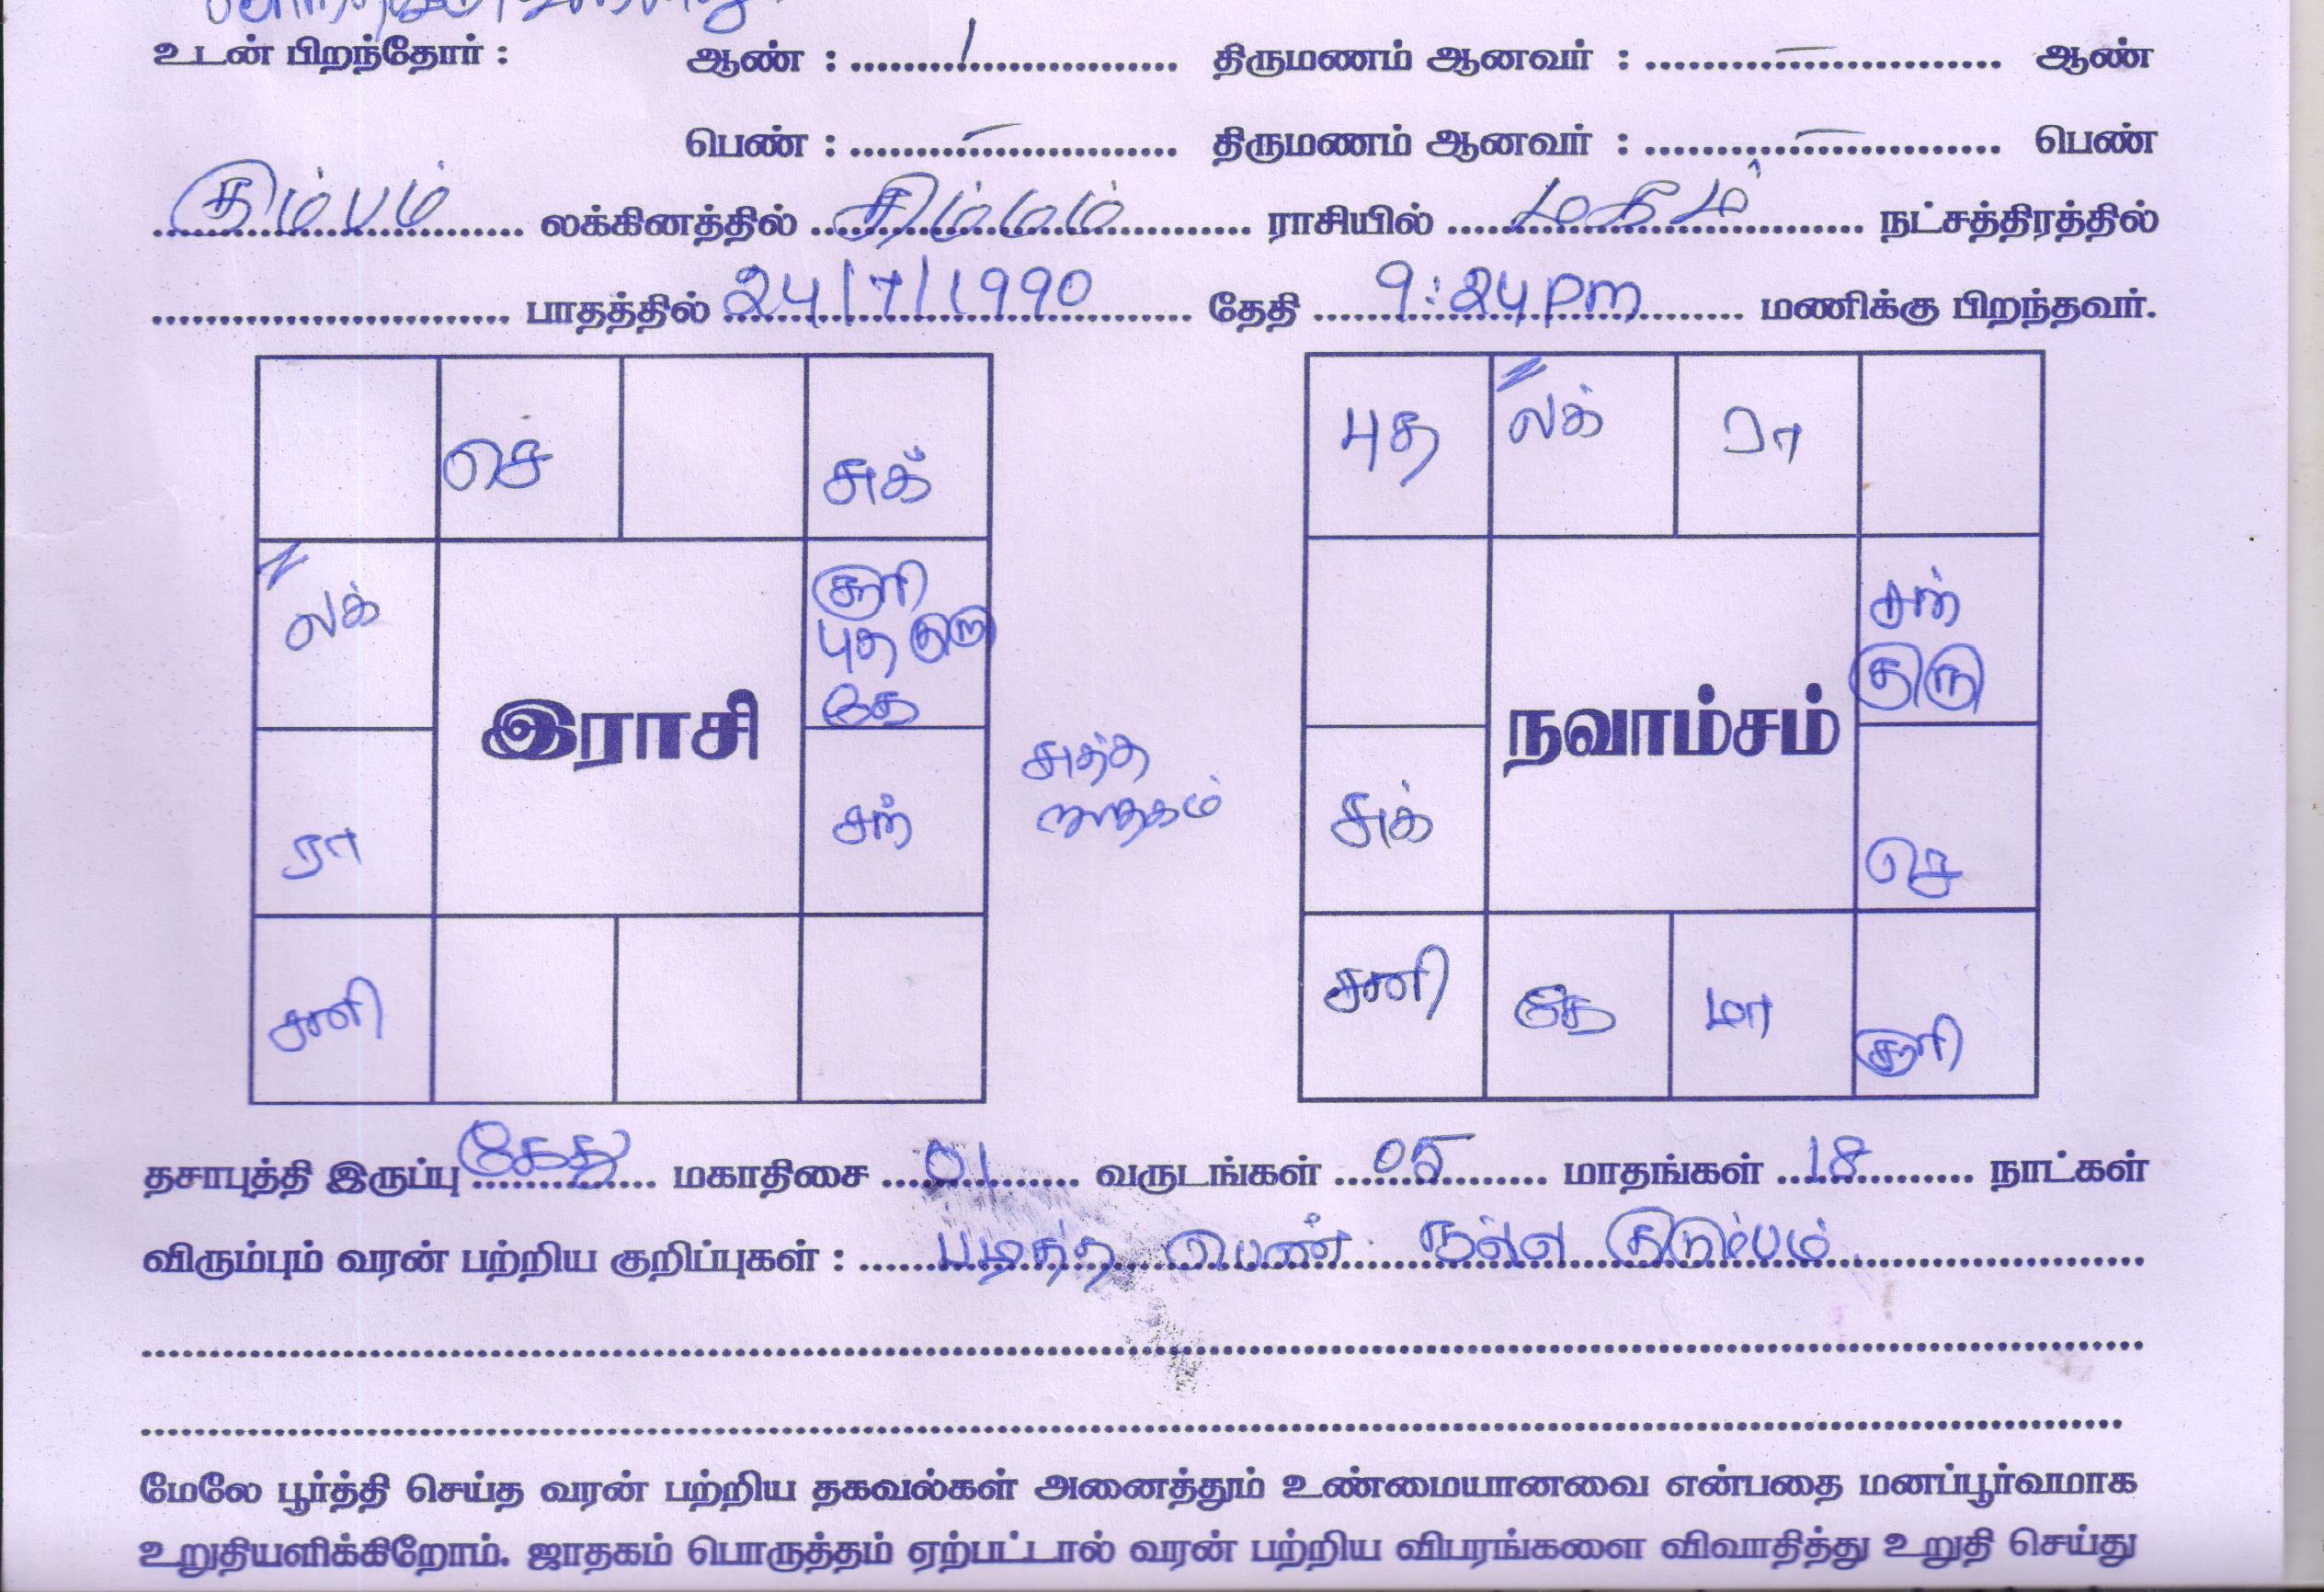 உடன் பிறந்தோர் : ஆண் : .......1.......... திருமணம் ஆனவர் : ........–.......... ஆண்
பெண் : .......–.......... திருமணம் ஆனவர் : ........–.......... பெண்
கும்பம் லக்கினத்தில் சிம்மம் ராசியில் மகம் நட்சத்திரத்தில்
.......................... பாதத்தில் 24/7/1990 தேதி 9:24 pm மணிக்கு பிறந்தவர்.
செ சுக்
லக் சூரி
புத குரு
கே
இராசி
ரா சந்
சனி
சுத்த
ஜாதகம்
புத லக் ரா
சந்
குரு
நவாம்சம்
சுக் செ
சனி கே மா சூரி
தசாபுத்தி இருப்பு கேது மகாதிசை 01 வருடங்கள் 05 மாதங்கள் 18 நாட்கள்
விரும்பும் வரன் பற்றிய குறிப்புகள் : படித்த பெண் நல்ல குடும்பம்
மேலே பூர்த்தி செய்த வரன் பற்றிய தகவல்கள் அனைத்தும் உண்மையானவை என்பதை மனப்பூர்வமாக
உறுதியளிக்கிறோம். ஜாதகம் பொருத்தம் ஏற்பட்டால் வரன் பற்றிய விபரங்களை விவாதித்து உறுதி செய்து